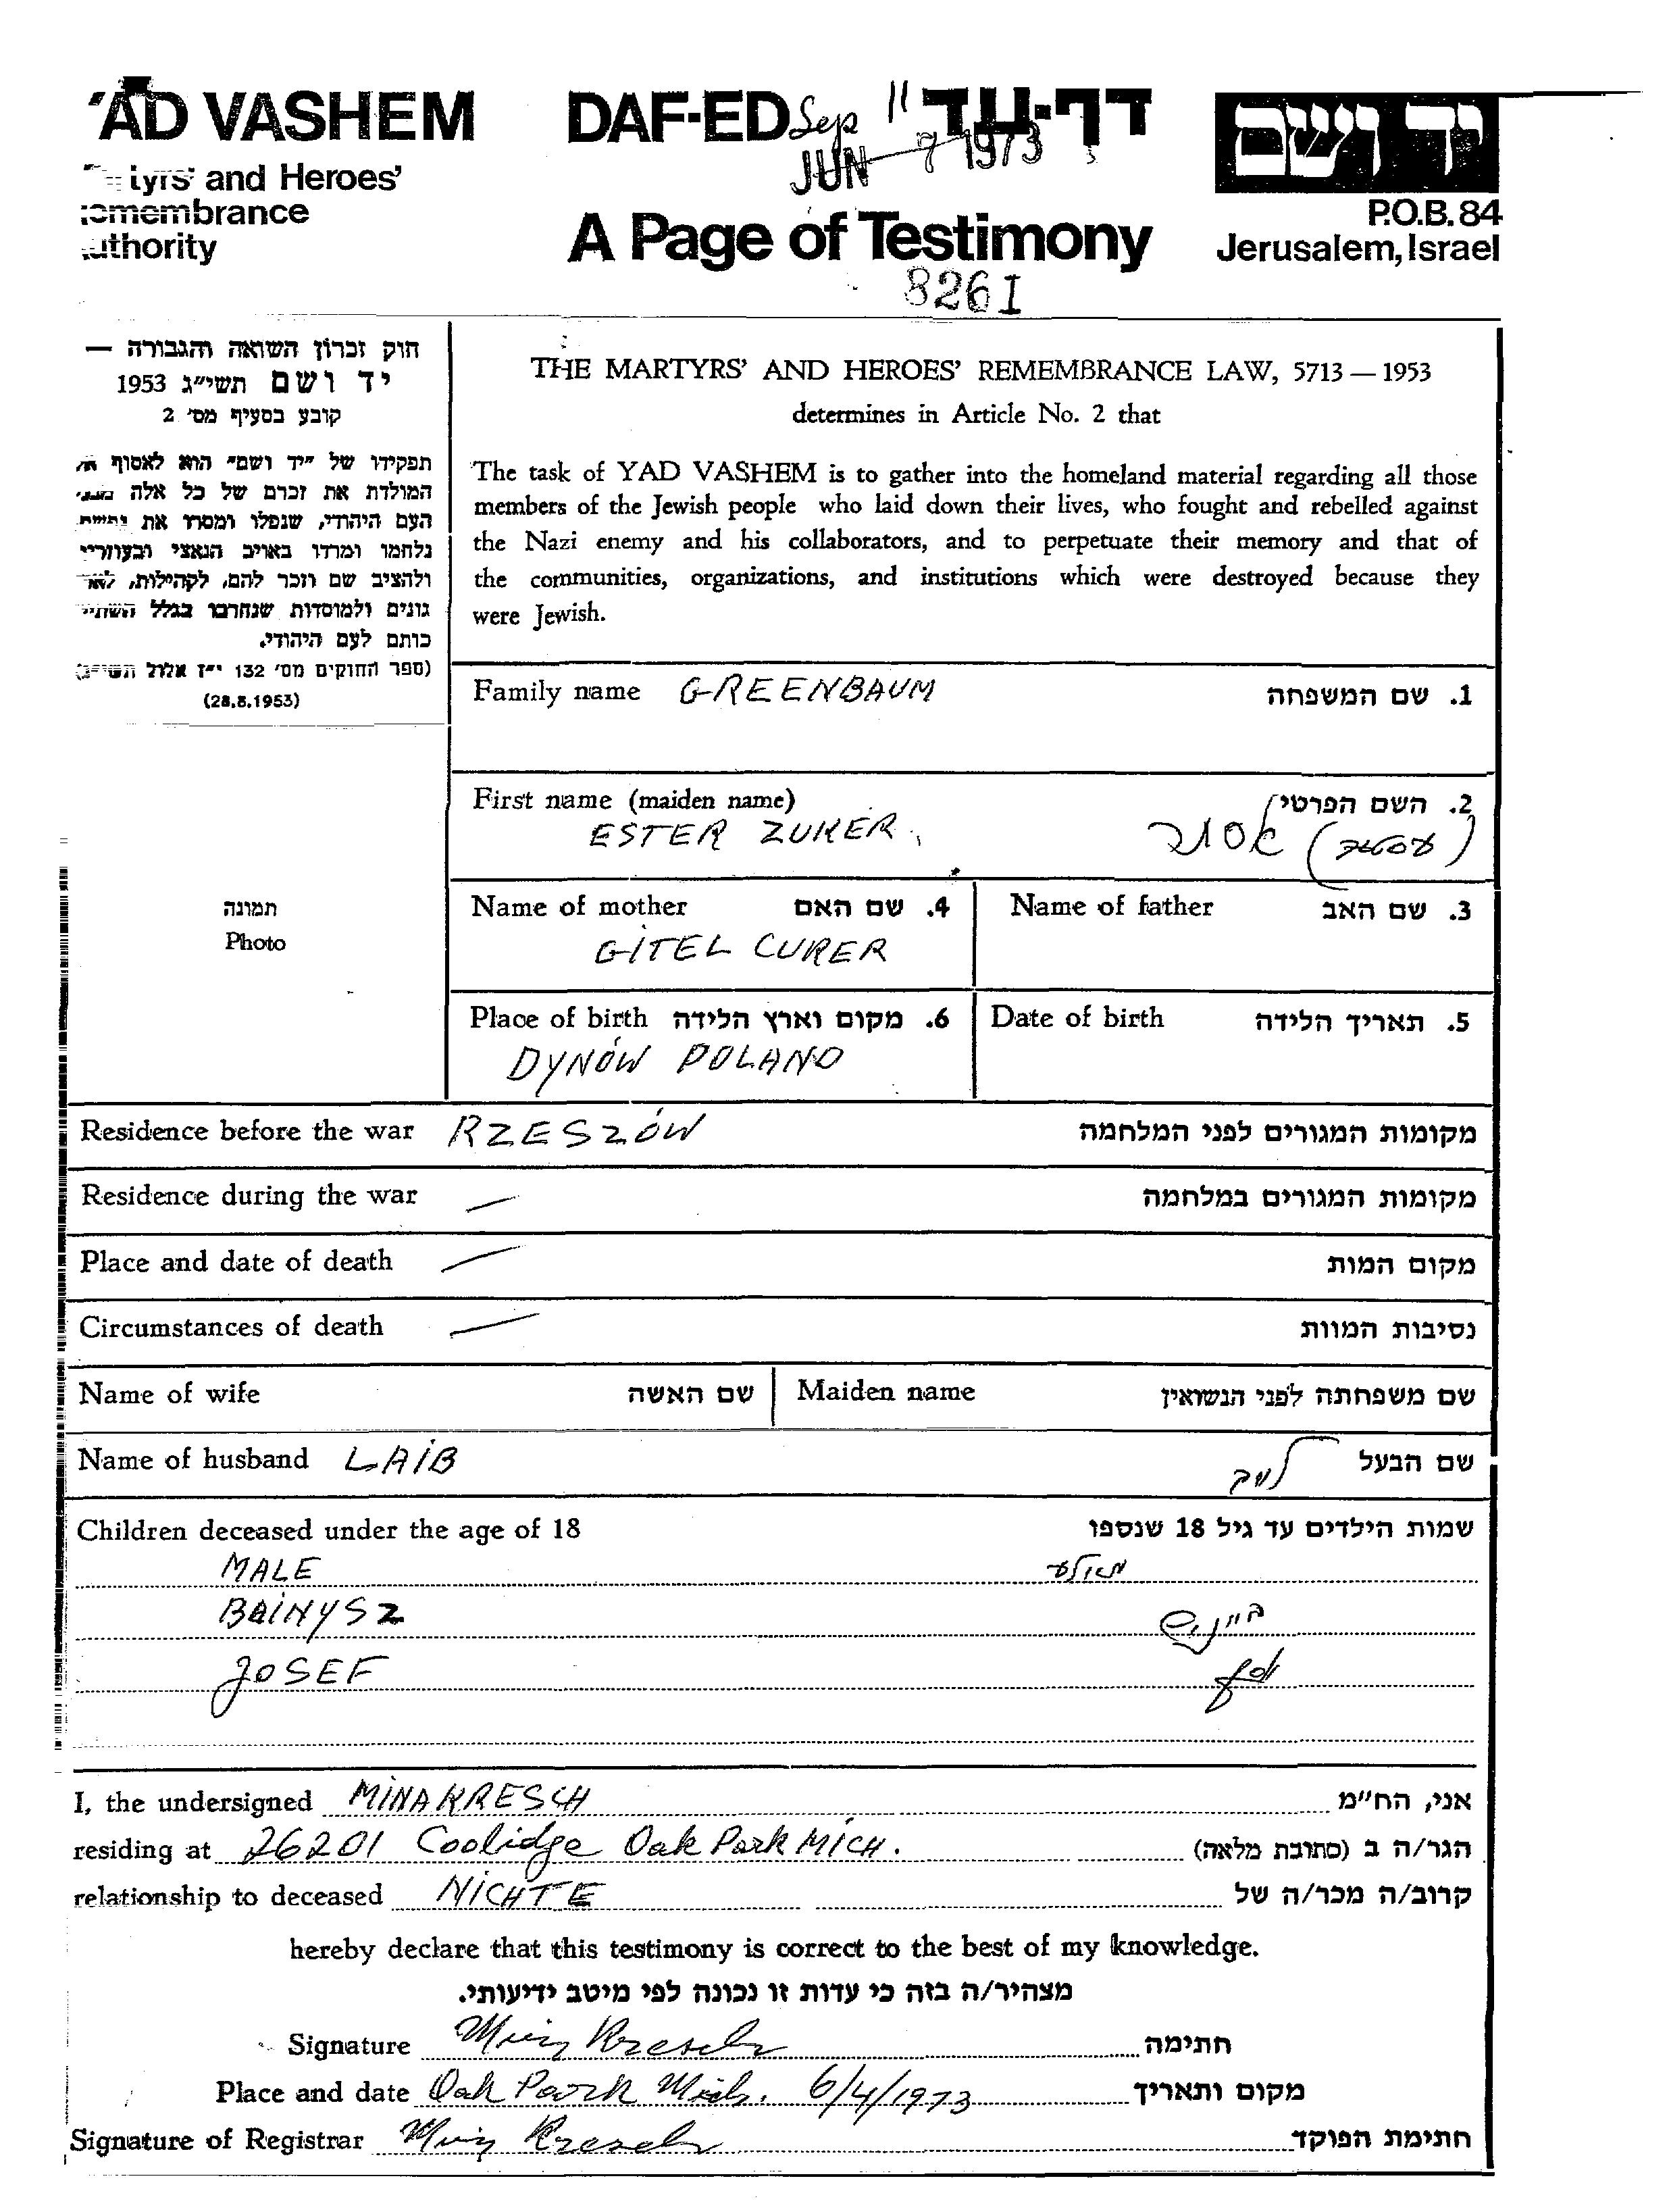 AD VASHEM
and Heroes'
DAF-ED דף-עד
Sep 11
JUN 7 1973
A Page of Testimony
8261
יד ושם
P.O.B. 84
Jerusalem, Israel
חוק זכרון השואה והגבורה —
יד ושם תשי״ג 1953
קובע בסעיף מס׳ 2
תפקידו של ״יד ושם״ הוא לאסוף
המולדת את זכרם של כל אלה
העם היהודי, שנפלו ומסרו את
נלחמו ומרדו באויב הנאצי
ולהציב שם וזכר להם, לקהילות,
גונים ולמוסדות שנחרבו בגלל
כותם לעם היהודי.
(ספר החוקים מס׳ 132 י״ז אלול
(28.8.1953)
THE MARTYRS' AND HEROES' REMEMBRANCE LAW, 5713 — 1953
determines in Article No. 2 that
The task of YAD VASHEM is to gather into the homeland material regarding all those
members of the Jewish people who laid down their lives, who fought and rebelled against
the Nazi enemy and his collaborators, and to perpetuate their memory and that of
the communities, organizations, and institutions which were destroyed because they
were Jewish.
Family name GREENBAUM 1. שם המשפחה
First name (maiden name) 2. השם הפרטי
ESTER ZUKER אסתר
תמונה
Photo
Name of mother 4. שם האם Name of father 3. שם האב
GITEL CUKER
Place of birth 6. מקום וארץ הלידה Date of birth 5. תאריך הלידה
DYNÓW POLAND
Residence before the war RZESZÓW מקומות המגורים לפני המלחמה
Residence during the war — מקומות המגורים במלחמה
Place and date of death — מקום המות
Circumstances of death — נסיבות המוות
Name of wife שם האשה Maiden name שם משפחתה לפני הנשואין
Name of husband LAIB שם הבעל
Children deceased under the age of 18 שמות הילדים עד גיל 18 שנספו
MALE מאלע
BAINYSZ ביינוש
JOSEF יוסף
I, the undersigned MINA KRESCH אני, הח״מ
residing at 26201 Coolidge Oak Park MICH. הגר/ה ב (כתובת מלאה)
relationship to deceased NICHTE קרוב/ה מכר/ה של
hereby declare that this testimony is correct to the best of my knowledge.
מצהיר/ה בזה כי עדות זו נכונה לפי מיטב ידיעותי.
Signature Mina Kresch חתימה
Place and date Oak Park Mich. 6/4/1973 מקום ותאריך
Signature of Registrar Mina Kresch חתימת הפוקד